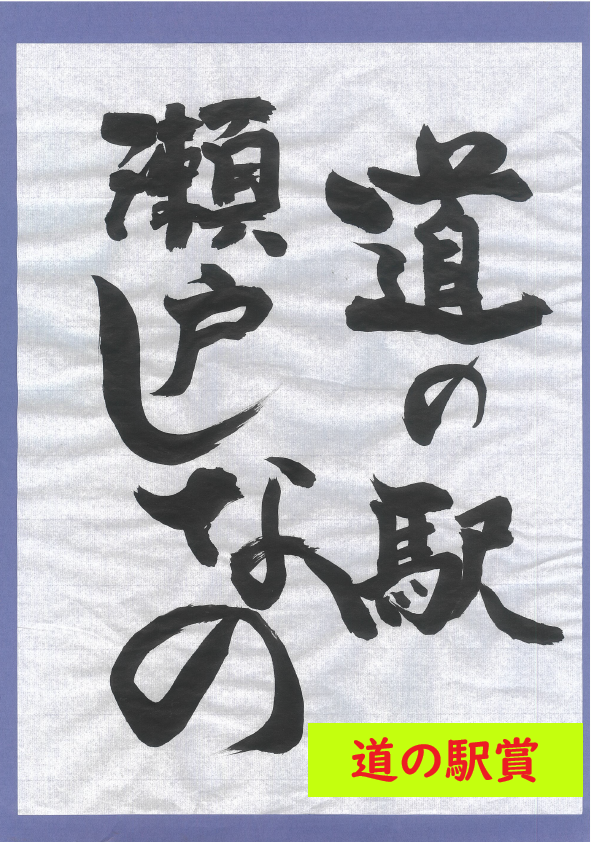 道の駅
瀬戸しなの
道の駅賞